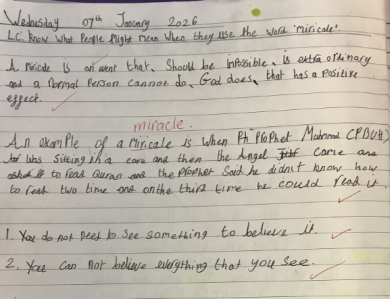 Wednesday 07th January 2026
LC: Know What People Might mean When they use the word 'miricale'.
A miricale is an event that, Should be Impossible, is extra ordinary
and a Normal Person cannot do, God does, that has a Positive
effect.
miracle.
An example of a miricale is when Prophet Muhammad (PBUH)
was Sitting in a cave and then the Angel came and
asked to read Quran and the Prophet Said he didn't know how
to read two time and on the third time he could read it.
1. You do not need to See Something to believe it.
2. You can not believe everything that you see.